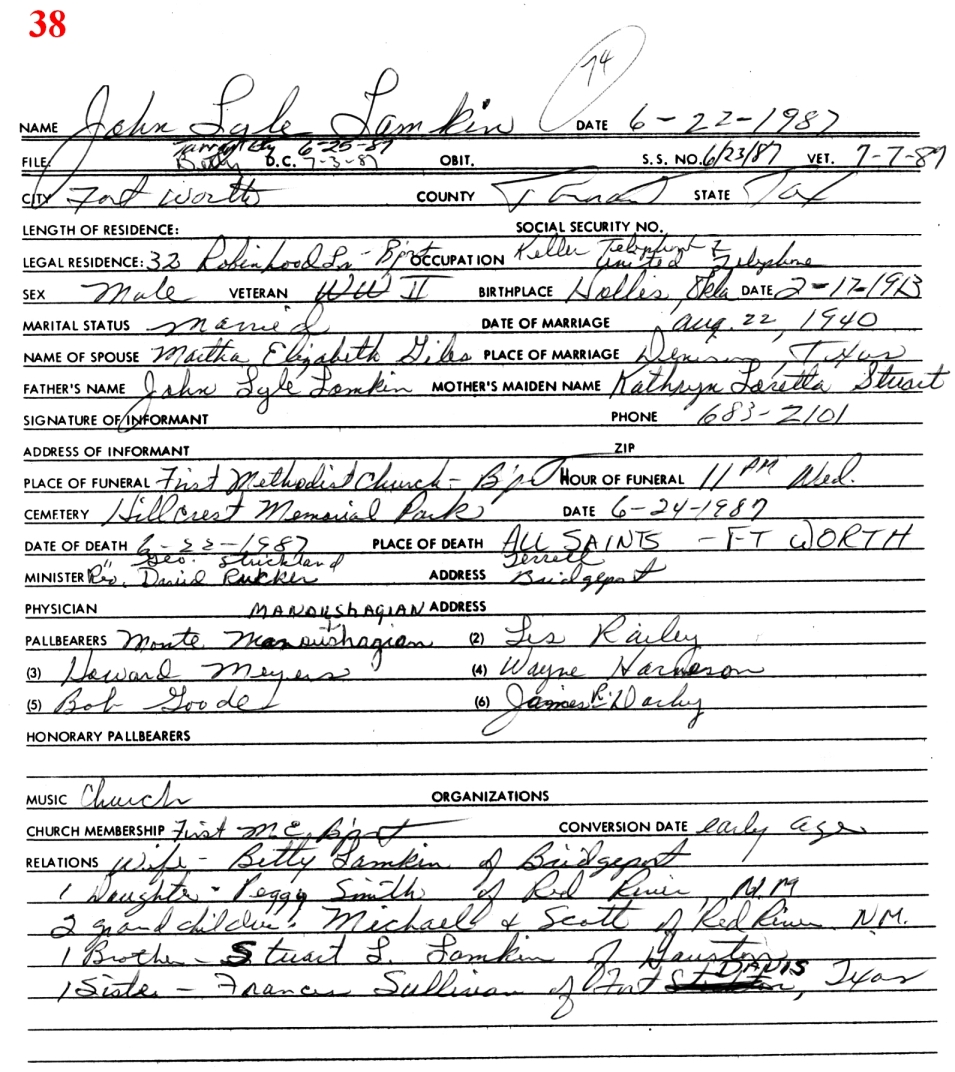 38
74
NAME John Lyle Lamkin DATE 6-22-1987
Tarrant Cty 6-25-87
FILE Betty D.C. 7-3-87 OBIT. S.S. NO. 6/23/87 VET. 7-7-87
CITY Fort Worth COUNTY Tarrant STATE Tex
LENGTH OF RESIDENCE: SOCIAL SECURITY NO.
LEGAL RESIDENCE: 32 Robinhood Ln - B'port OCCUPATION Keller Telephone & United Telephone
SEX Male VETERAN WW II BIRTHPLACE Hollis, Okla DATE 2-17-1913
MARITAL STATUS Married DATE OF MARRIAGE Aug. 22, 1940
NAME OF SPOUSE Martha Elizabeth Giles PLACE OF MARRIAGE Denison, Texas
FATHER'S NAME John Lyle Lamkin MOTHER'S MAIDEN NAME Kathryn Loretta Stuart
SIGNATURE OF INFORMANT PHONE 683-2101
ADDRESS OF INFORMANT ZIP
PLACE OF FUNERAL First Methodist Church - B'port HOUR OF FUNERAL 11 AM Wed.
CEMETERY Hillcrest Memorial Park DATE 6-24-1987
DATE OF DEATH 6-22-1987 PLACE OF DEATH ALL SAINTS - FT WORTH
" Geo. Strickland Terrell
MINISTER Rev. David Rucker ADDRESS Bridgeport
PHYSICIAN ADDRESS
MANOUSHAGIAN
PALLBEARERS Monte Manoushagian (2) Les Railey
(3) Howard Meyers (4) Wayne Harneson
(5) Bob Goode (6) James R. Darby
HONORARY PALLBEARERS
MUSIC Church ORGANIZATIONS
CHURCH MEMBERSHIP First M.E. B'port CONVERSION DATE early age
RELATIONS Wife - Betty Lamkin of Bridgeport
1 Daughter - Peggy Smith of Red River, N.M
2 grandchildren: Michael & Scott of Red River N.M.
1 Brother - Stuart L. Lamkin of Houston
1 Sister - Frances Sullivan of Fort DAVIS, Texas